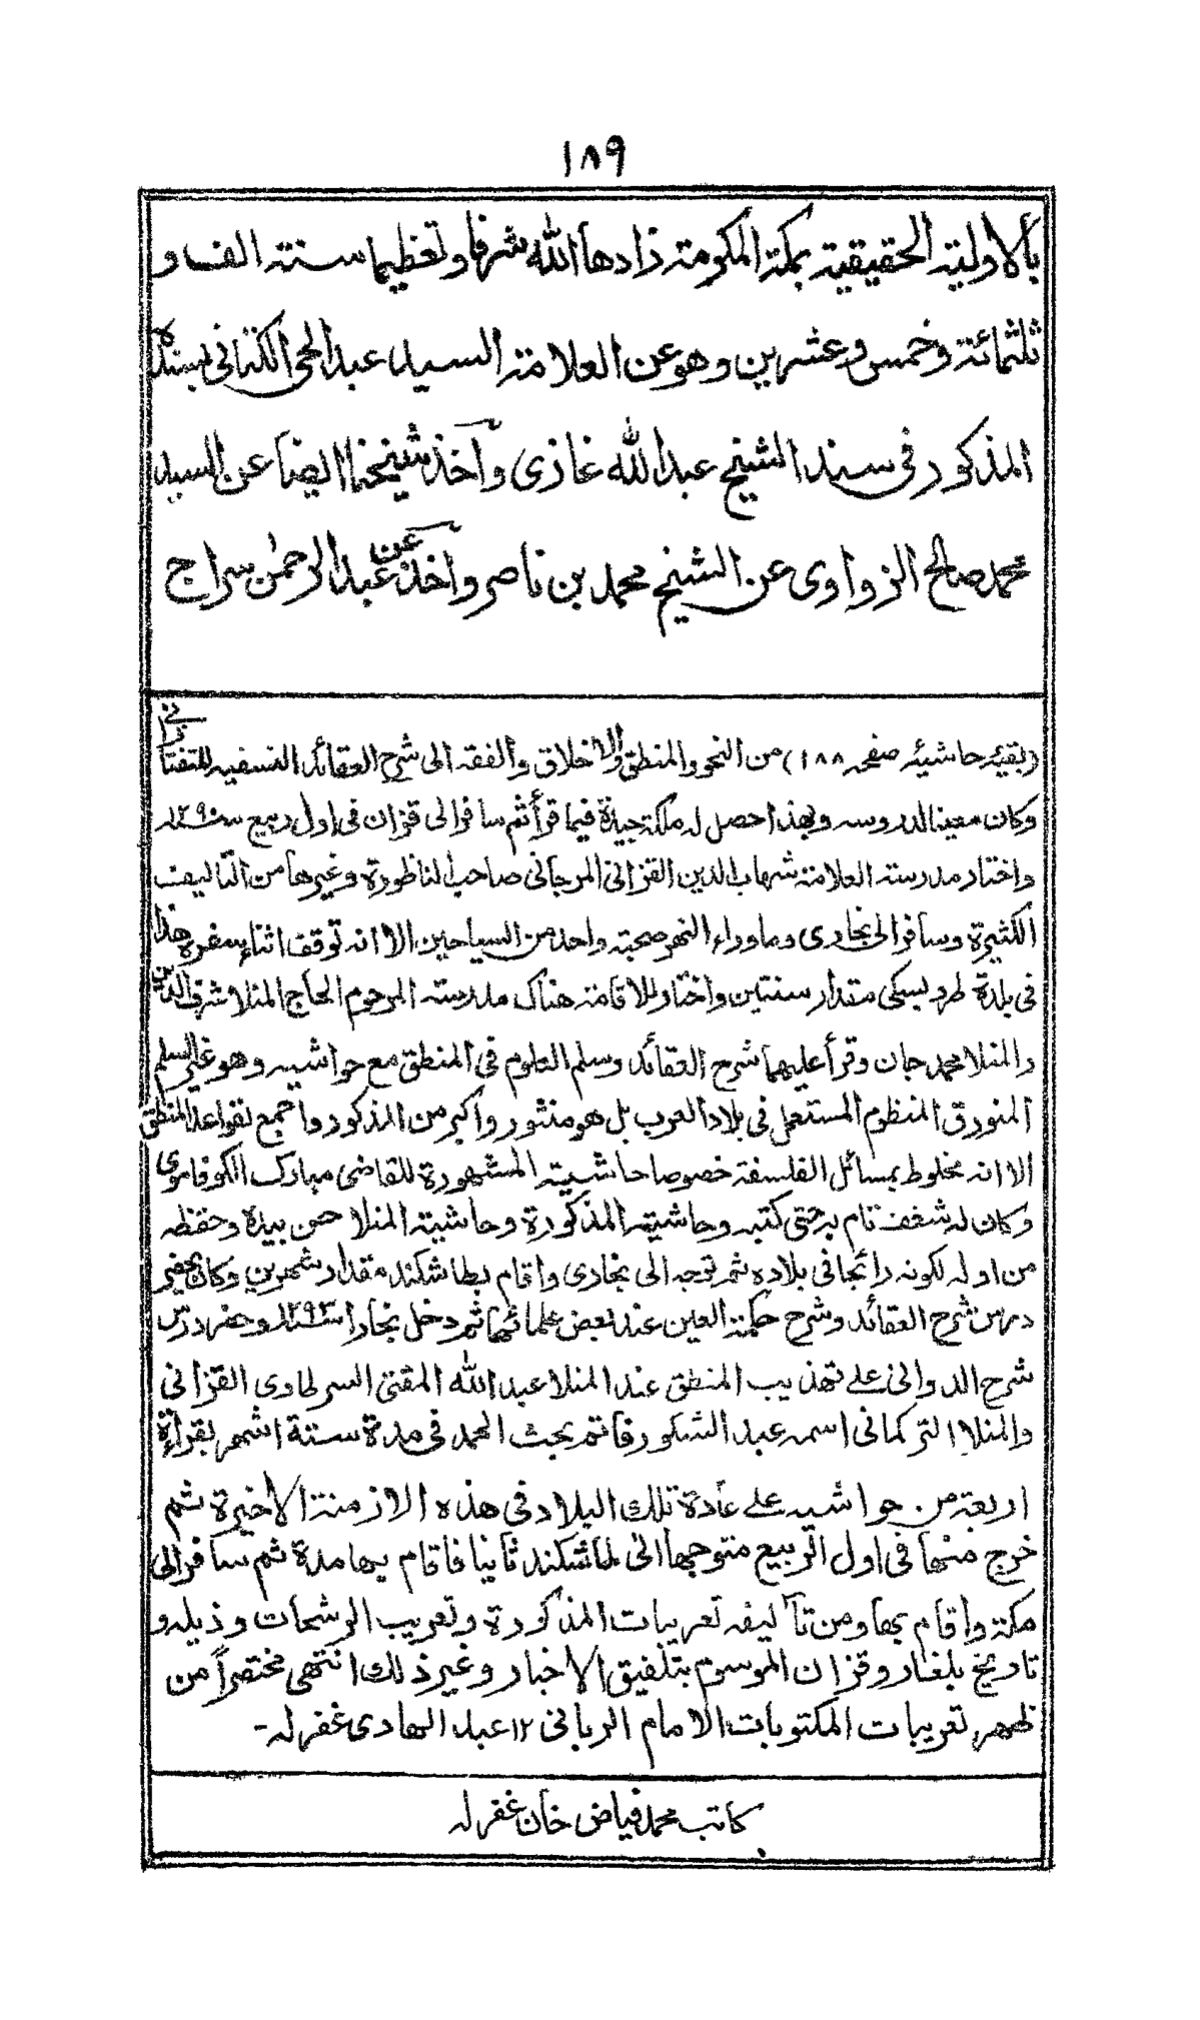 ١٨٩
بالاولية الحقيقية بمكة المكرمة زادها الله شرفا وتعظيما سنة الف و
ثلثمائة وخمس وعشرين وهو عن العلامة السيد عبد الحي الكتاني بسنده
المذكور في سند الشيخ عبد الله غازي وآخذ شيخنا ايضا عن السيد
محمد صالح الزواوي عن الشيخ محمد بن ناصر واخذ عن عبد الرحمن سراج
(بقيه حاشيه صفحه ١٨٨) من النحو والمنطق والاخلاق والفقه الى شرح العقائد النسفيه للتفتازاني
وكان معينا لدروسه وبهذا حصل له ملكة جيدة فيما قرأ ثم سافر الى قزان في اول ربيع سنه ١٢٩٠
واختار مدرسة العلامة شهاب الدين القزاني المرجاني صاحب الناظورة وغيرها من التاليف
الكثيرة وسافر الى بخارى وما وراء النهر صحبة واحد من السياحين الا انه توقف اثناء سفره هذا
في بلدة طرويسكي مقدار سنتين واختار للاقامة هناك مدرسة المرحوم الحاج المنلا شرف الدين
والمنلا محمد جان وقرأ عليهما شرح العقائد وسلم العلوم في المنطق مع حواشيه وهو غير السلم
المنورق المنظوم المستعمل في بلاد العرب بل هو منثور واكبر من المذكور واجمع لقواعد المنطق
الا انه مخلوط بمسائل الفلسفة خصوصا حاشيته المشهورة للقاضي مبارك الكوفاموى
وكان له شغف تام بـ كتبه وحاشيته المذكورة وحاشية المنلا حسن بيده وحفظه
من اوله لكونه رائجا في بلاده ثم توجه الى بخارى واقام بطاشكند مقدار شهرين وكان يحضر
درس شرح العقائد وشرح حكمة العين عند بعض علمائها ثم دخل بخارا سنه ١٢٩٣ وحضر درس
شرح الدواني على تهذيب المنطق عند المنلا عبد الله المفتى السرطاوى القزاني
والمنلا التركماني اسمه عبد الشكور فاتم بحث الحمد في مدة ستة اشهر بقرأة
اربعة من حواشيه على عادة تلك البلاد في هذه الازمنة الاخيرة ثم
خرج منها في اول الربيع متوجها الى طاشكند ثانيا فاقام بها مدة ثم سافر الى
مكة واقام بها ومن تآليفه تعريبات المذكورة وتعريب الرشحات وذيله و
تاريخ بلغار وقزان الموسوم بتلفيق الاخبار وغير ذلك انتهى مختصراً من
ظهر تعريبات المكتوبات الامام الرباني ١٢ عبد الهادي غفر له -
كاتب محمد فياض خان غفر له